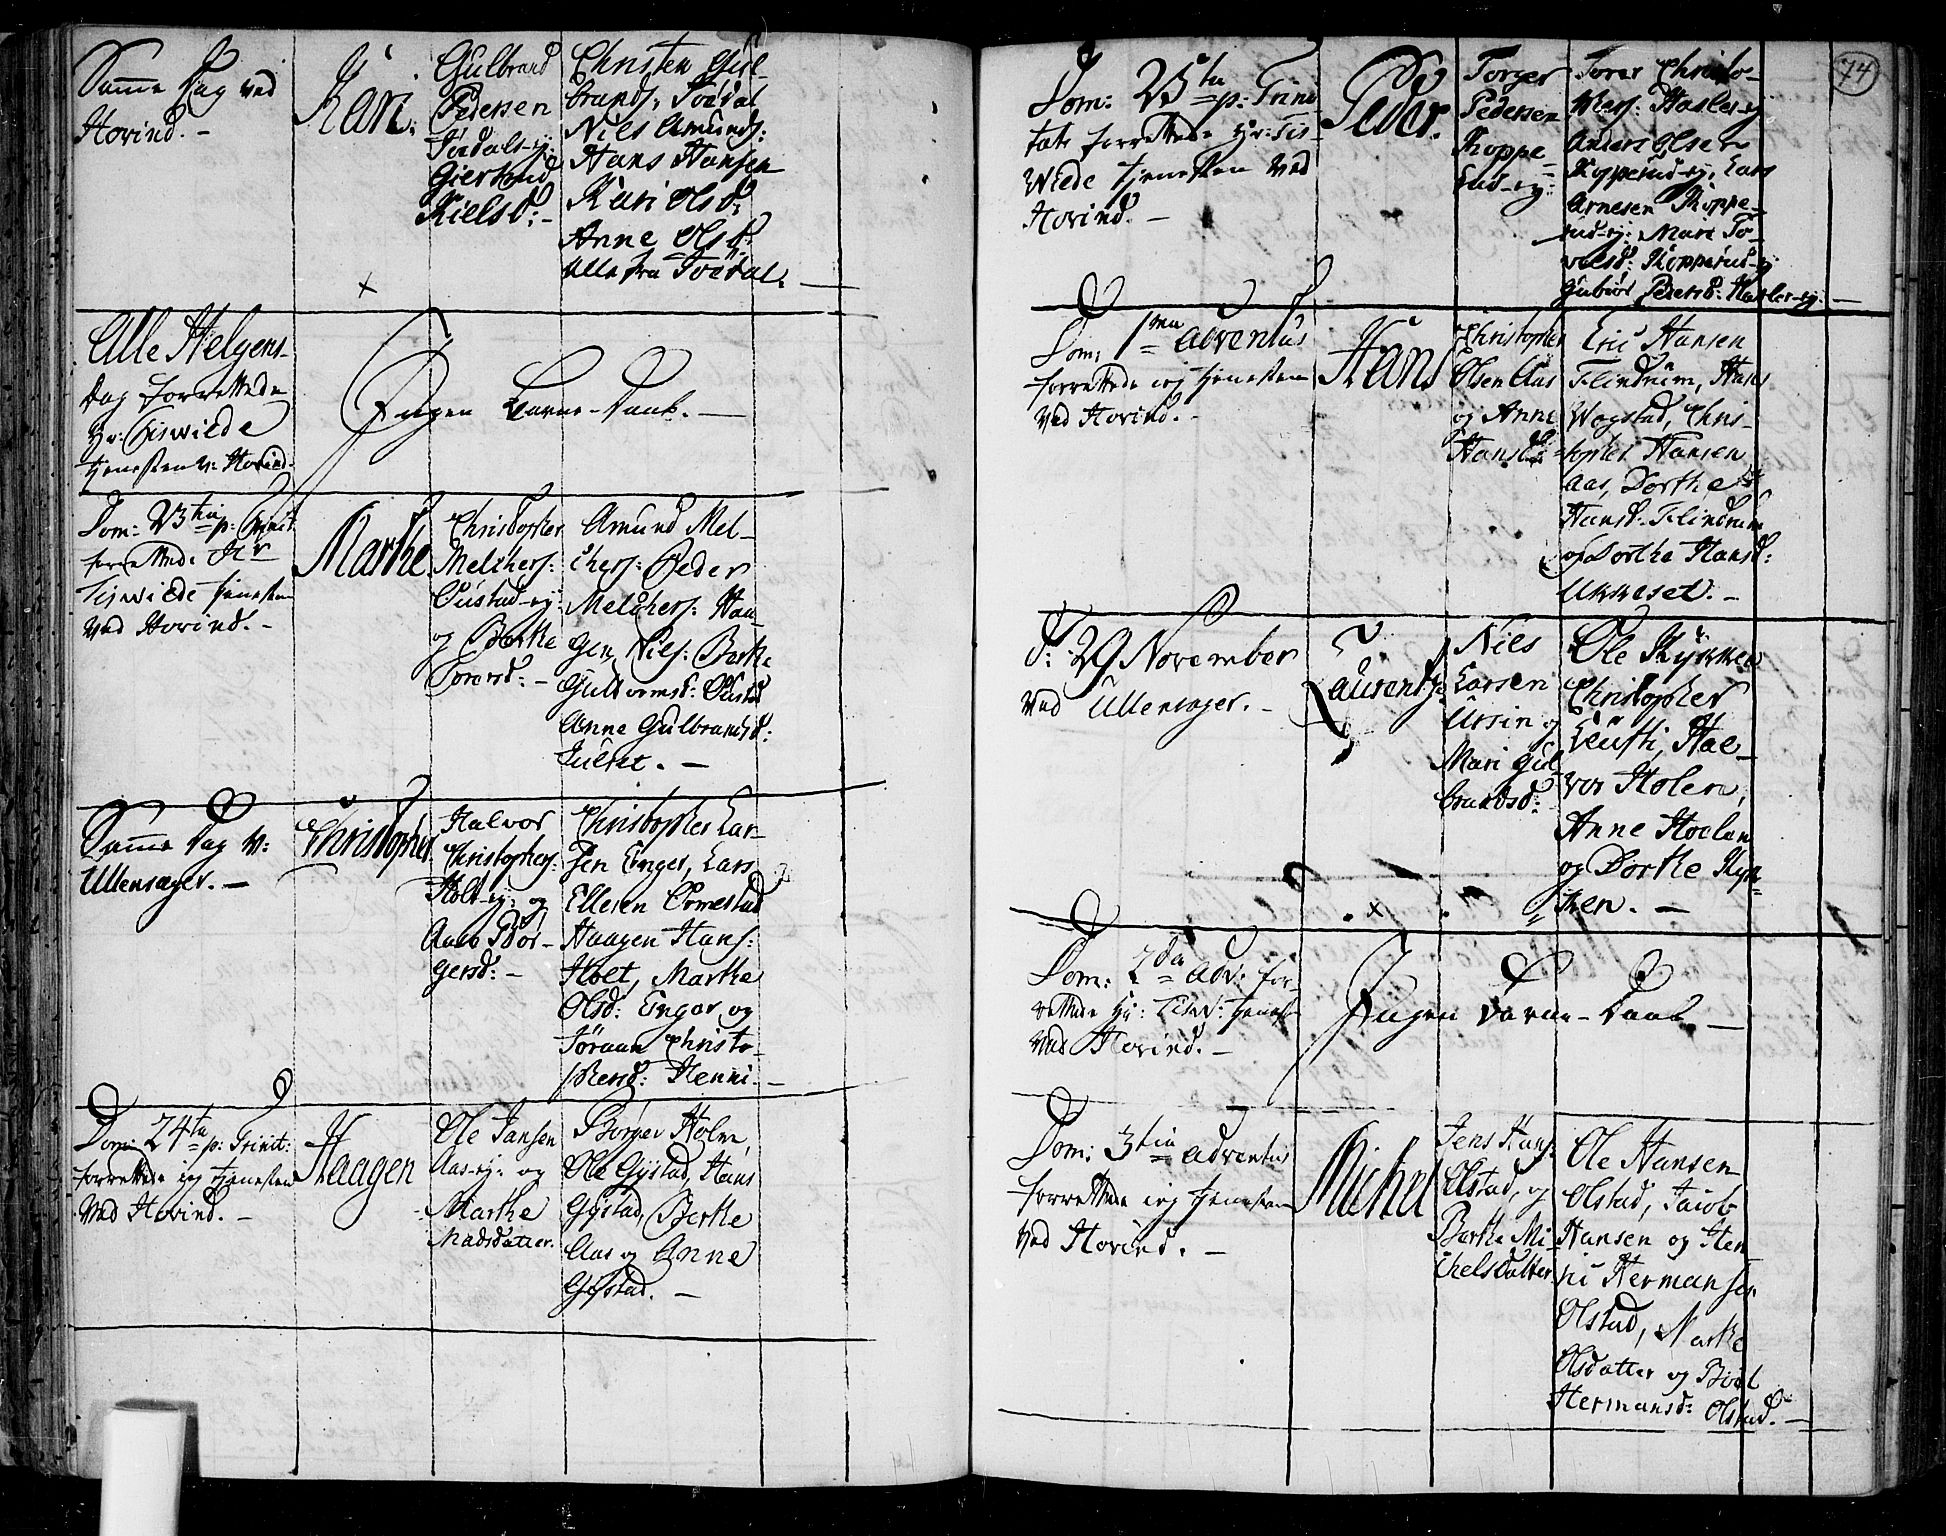 Samme Dag ved
Hovind. -
Kari.
Gulbrand
Pedersen
Joedals-ej:
Giertrud
Nielsd: -
Christen Gul-
brands: Joedal
Nils Amunds:
Hans Hansen
Kari Olsd:
Anne Olsd:
alle fra Joedal. -
Alle Helgens-
Dag forrettede
Hr: Tiswilde
tjenesten v: Hovind.
Ingen Barne-Daab. -
Dom: 23tia p: Trinit:
forrettede Hr
Tiswilde tjenesten
ved Hovind. -
Marthe.
Christopher
Melchers:
Oustad-ej:
og Berthe
Torersd: -
Amund Mel-
chers: Peder
Melchers: Hau-
gen, Nils: Berthe
Guldormsd: Oustad
Anne Gulbrandsd:
Julset. -
Samme Dag v:
Ullensager. -
Christopher
Halvor
Christophers:
Holt-ej: og
Anne Bør-
gersd: -
Christopher Lar-
sen Enger, Lars
Ellesen Ormestad
Haagen Hans:
Holt, Marthe
Olsd: Enger og
Jøraan Christo-
phersd: Henni. -
Dom: 24ta p: Trinit:
forrettede jeg tjenesten
ved Hovind. -
Haagen
Ole Jansen
Aas-ej: og
Marthe
Madsdatter.
Børger Holm,
Ole Gystad, Hans
Gystad, Berthe
Aas og Anne
Gystad. -
74
Dom: 25ta p: Trini
tatis forrettede Hr: Tis-
wilde tjenesten ved
Hovind. -
Peder.
Torger
Pedersen
Koppe-
rud-ej:
Torer Christo-
phers: Hasler-ej
Anders Olsen
Kopperud-ej, Lars
Arnesen Koppe-
rud-ej: Mari To-
relsd: Kopperud-ej
Gubiør Pedersd: Hasler-ej. -
Dom: 1ma adventus
forrettede jeg tjenesten
ved Hovind. -
Hans
Christopher
Olsen Aas
og Anne
Hansd:
Eric Hansen
Flindrum, Hans
Wogstad, Chris-
topher Hansen
Aas, Dorthe
Hansd: Flindrum
og Dorthe Hansd:
Ukkeset. -
D: 29 November
ved Ullensager. -
Laurentz.
Niels
Larsen
Ursin og
Mari Gul-
brandsd:
Ole Kykken
Christopher
Leufti, Hal-
vor Holen,
Anne Hoelen
og Dorthe Kyk-
ken. -
Dom: 2da adv: for-
rettede Hr: Tisw: tjenest-
ved Hovind. -
Ingen Barne-Daab -
Dom: 3tia adventus
forrettede jeg tjenesten
ved Hovind. -
Michel
Jens Hans:
Olstad, og
Berthe Mi-
chelsdatter
Ole Hansen
Olstad, Jacob
Hansen og Hen
ric Hermansen
Olstad, Marthe
Olsdatter og Boel
Hermansd: Olstad. -